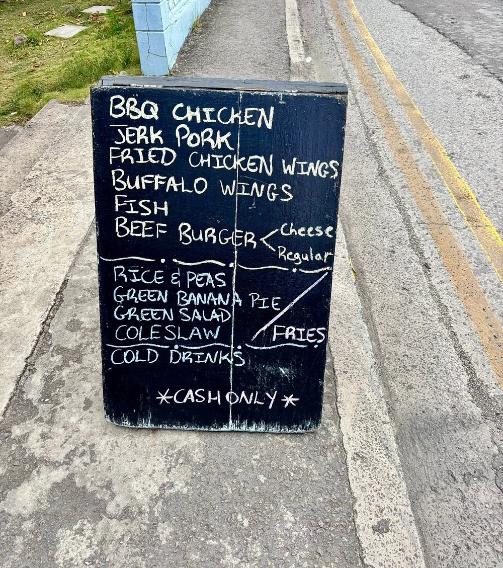 BBQ CHICKEN
JERK PORK
FRIED CHICKEN WINGS
BUFFALO WINGS
FISH
BEEF BURGER < Cheese
Regular
RICE & PEAS
GREEN BANANA PIE
GREEN SALAD
COLESLAW / FRIES
COLD DRINKS
*CASH ONLY*